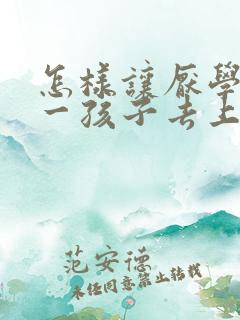 怎樣讓厭學
一孩子去上
范安德
未经同意禁止转载